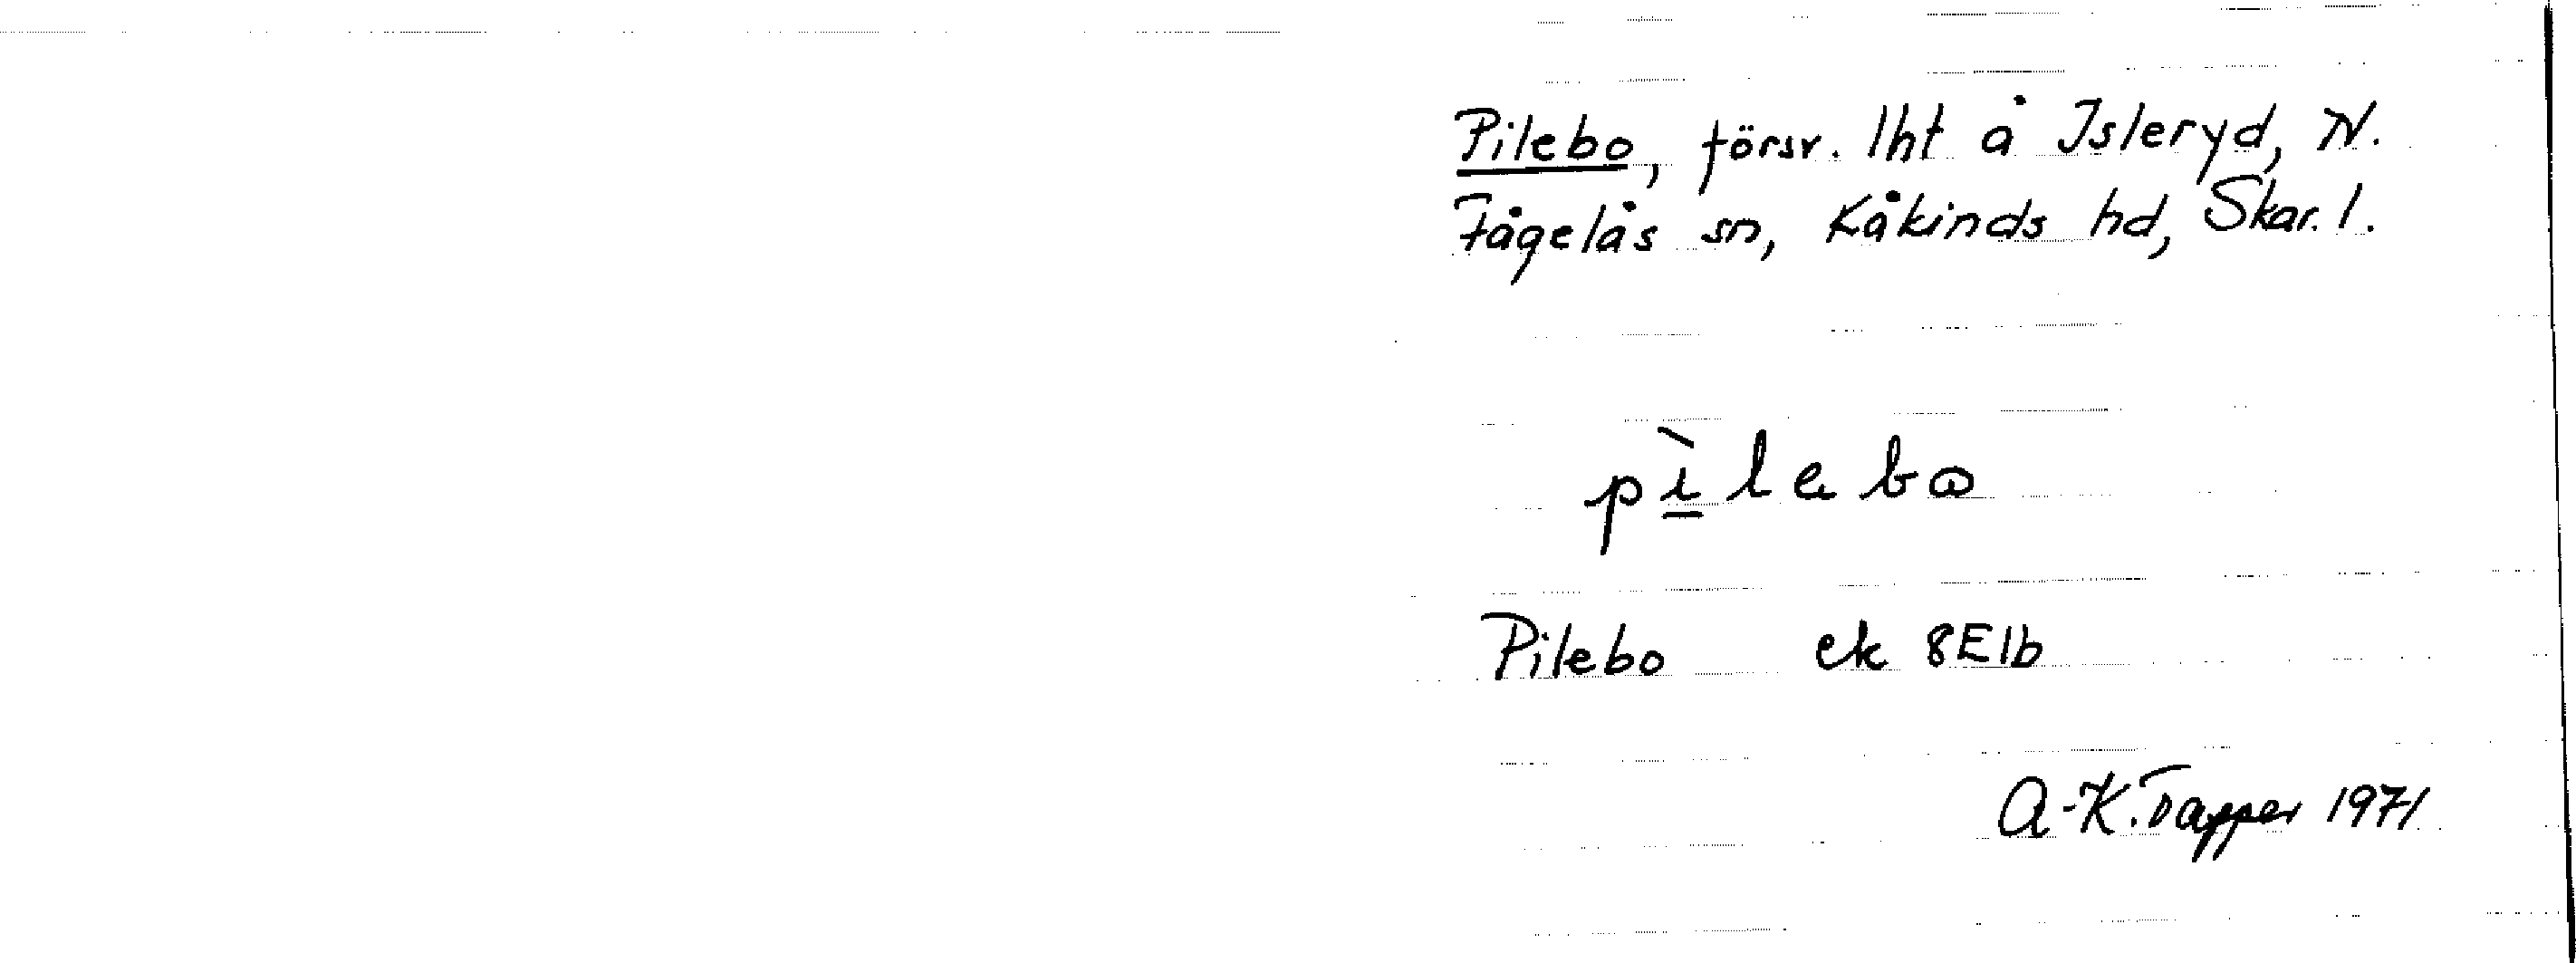 Pilebo, försv. lht å Isleryd, N.
Fågelås sn, Kåkinds hd, Skar. l.
pìlebo
Pilebo ek 8E1b
A-K. Tapper 1971